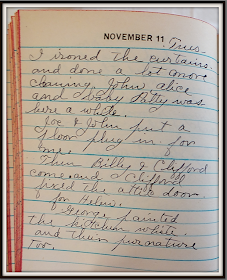 NOVEMBER 11 Tues
I ironed the curtains
and done a lot more
cleaning. John, alice
and baby Billy was
here a while.
Joe & John put a
floor plug in for
me.
Then Billy & Clifford
come and Clifford
fixed the attic door
for Helen.
George painted
the kitchen white
and them furnature
too.